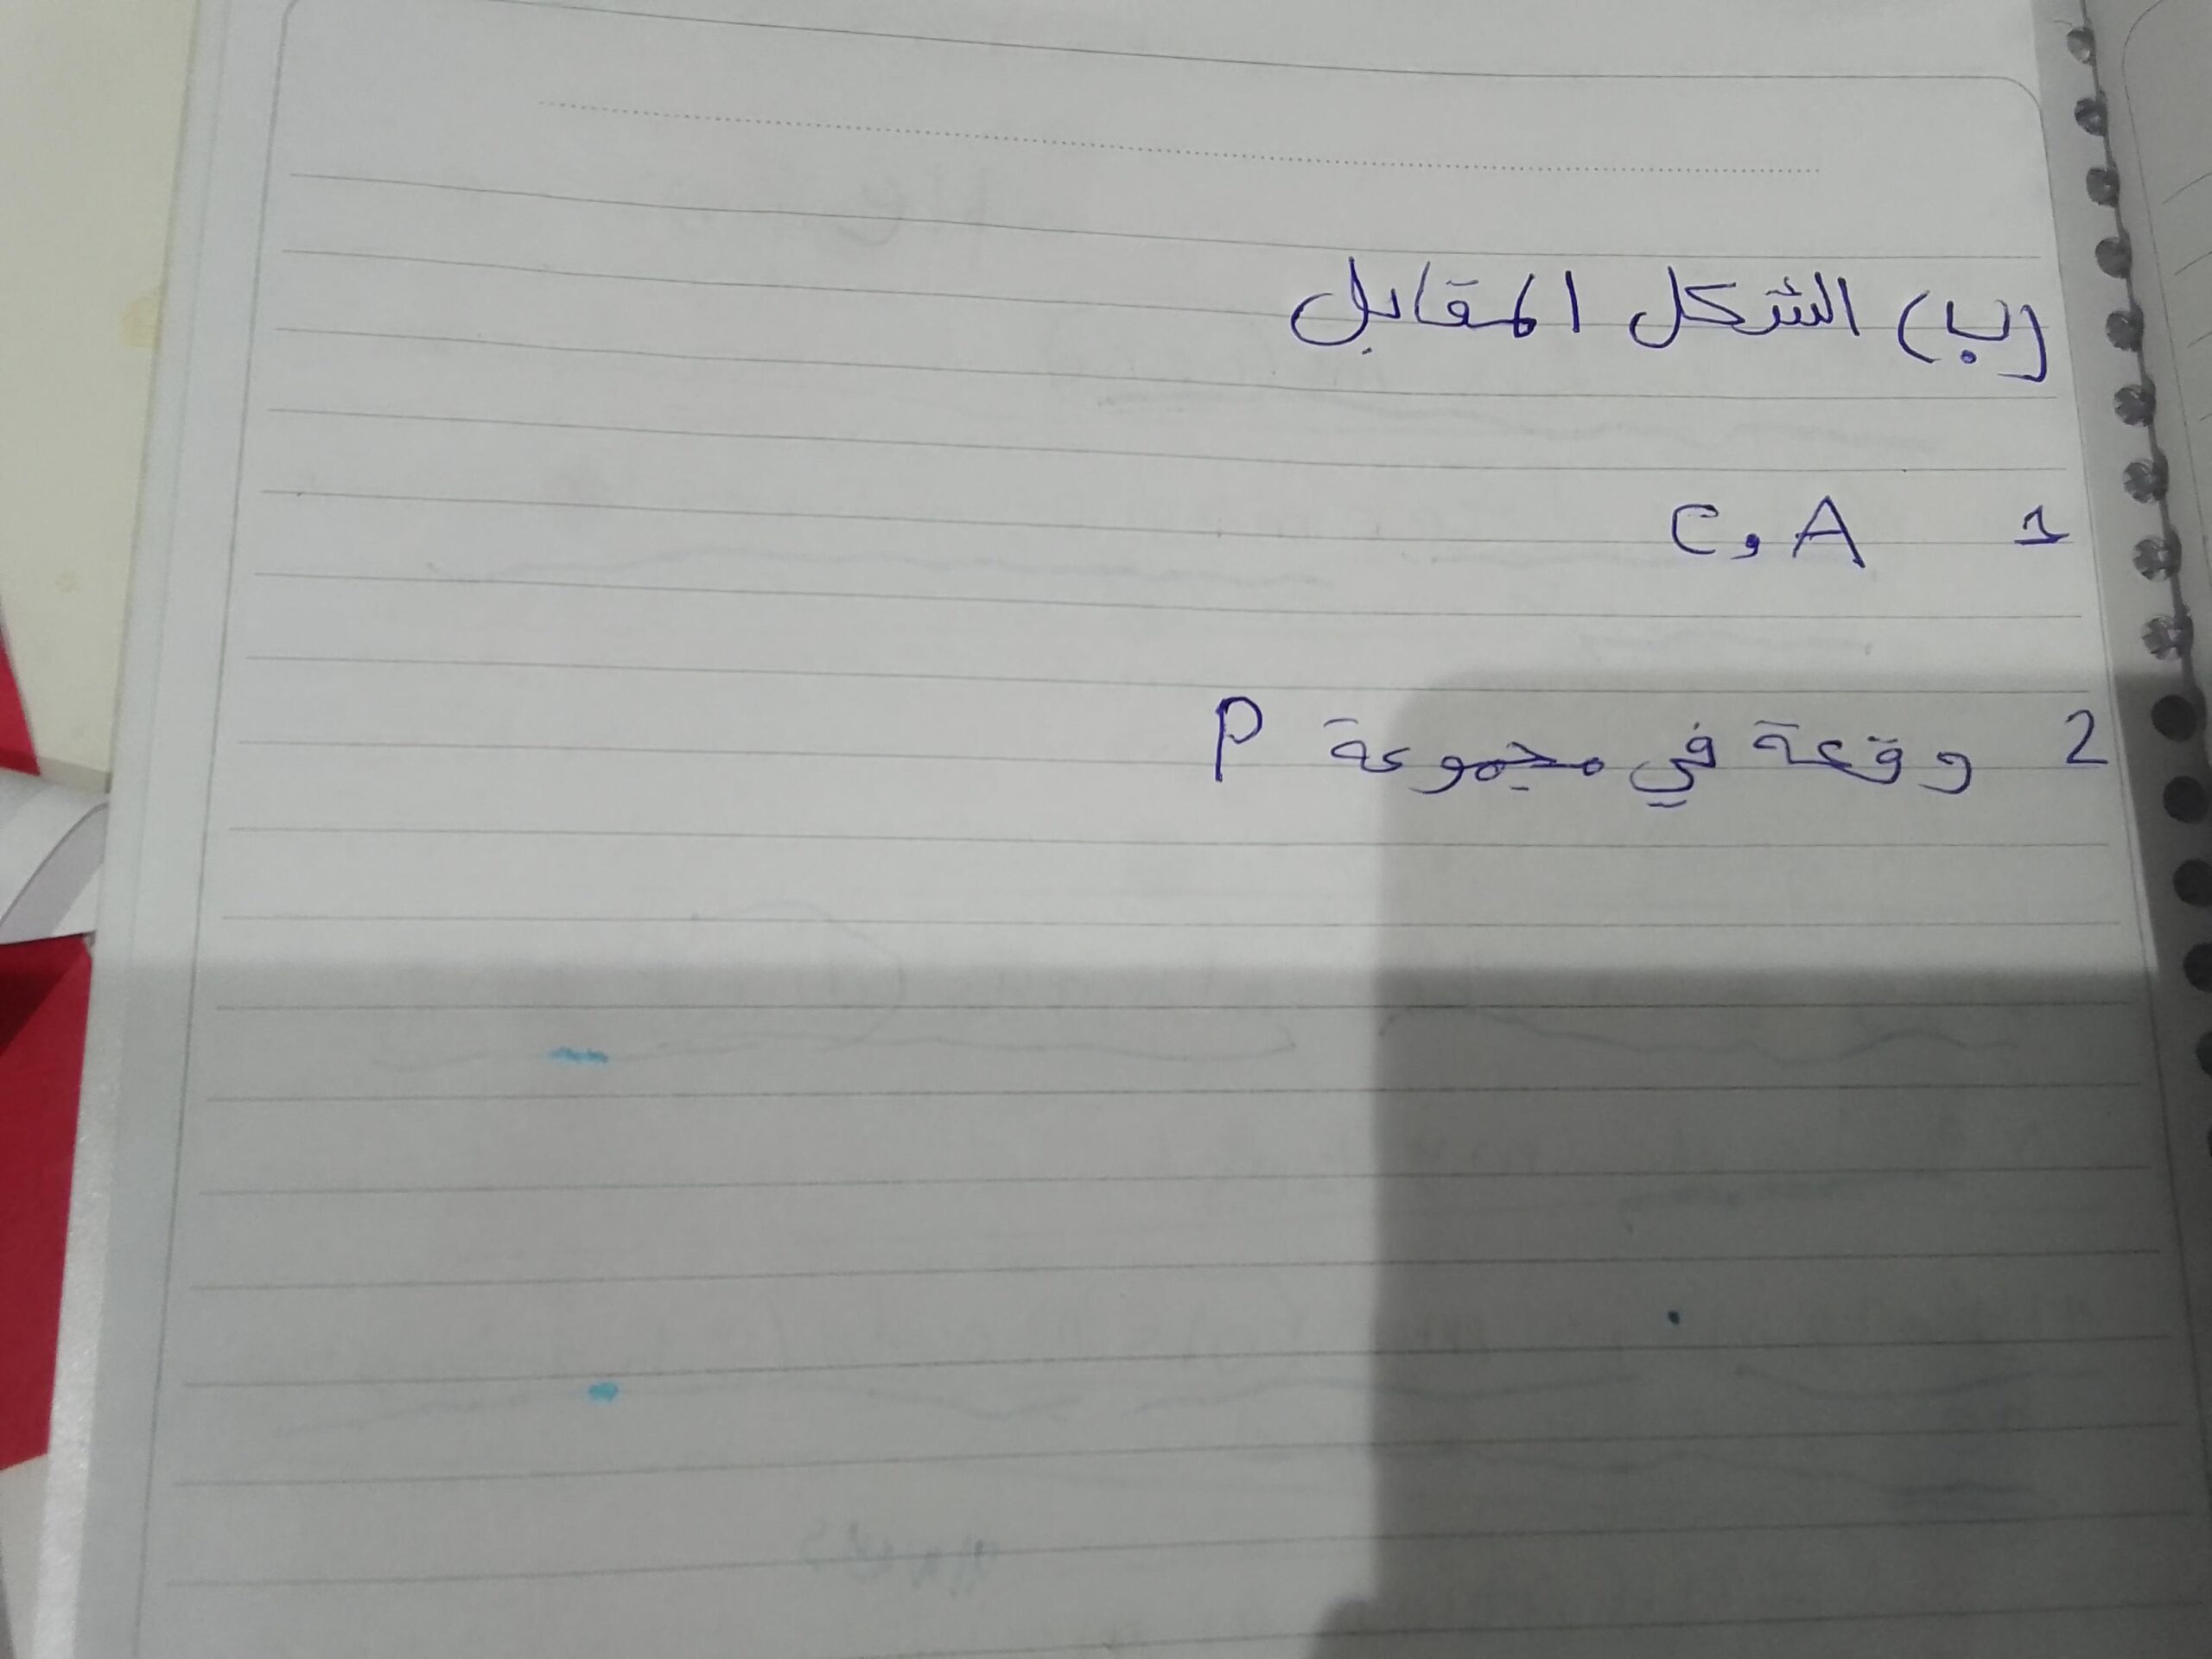 (ب) الشكل المقابل
1 A و C
2 وقعة في مجموعة P